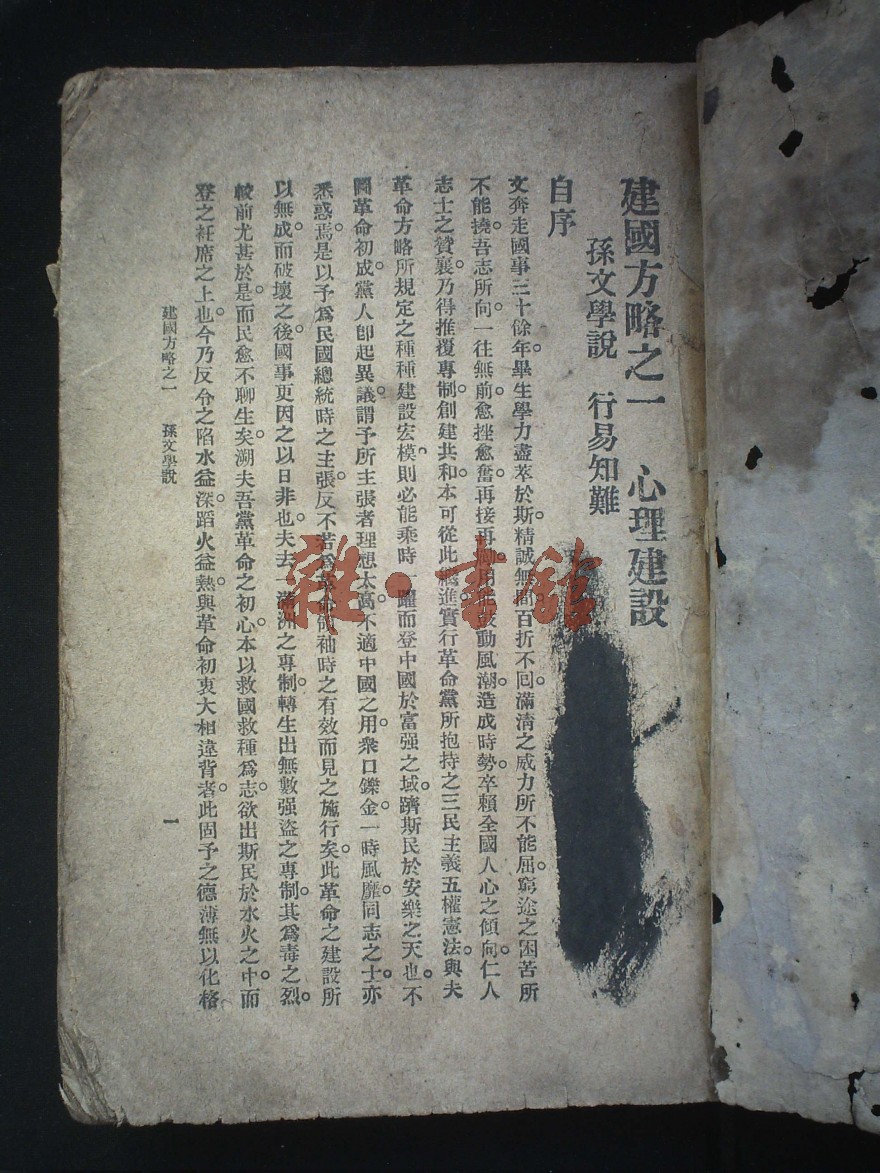 建國方略之一 心理建設
孫文學說 行易知難
自序
文奔走國事三十餘年。畢生學力盡萃於斯。精誠無間。百折不囘。滿清之威力所不能屈。窮途之困苦所
不能撓。吾志所向。一往無前。愈挫愈奮。再接再 動風潮。造成時勢。卒賴全國人心之傾向。仁人
志士之贊襄。乃得推覆專制。創建共和。本可從此 進。實行革命黨所抱持之三民主義五權憲法。與夫
革命方略所規定之種種建設宏模。則必能乘時 躍而登中國於富强之域。躋斯民於安樂之天也。不
圖革命初成。黨人卽起異議。謂予所主張者理想太高。不適中國之用。衆口鑠金。一時風靡。同志之士。亦
悉惑焉。是以予爲民國總統時之主張。反不若 革命領袖時之有效而見之施行矣。此革命之建設所
以無成。而破壞之後。國事更因之以日非也。夫去一滿洲之專制。轉生出無數强盜之專制。其爲毒之烈。
較前尤甚。於是。而民愈不聊生矣。溯夫吾黨革命之初心。本以救國救種爲志。欲出斯民於水火之中。而
登之袵席之上也。今乃反令之陷水益深。蹈火益熱。與革命初衷大相違背者。此固予之德薄無以化格
建國方略之一 孫文學說 一
雜·書舘